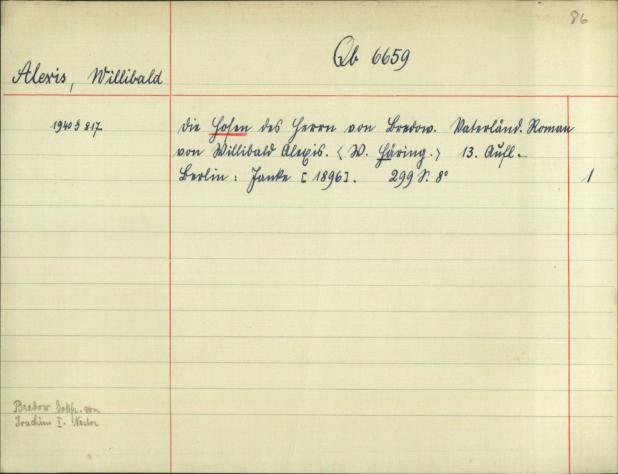 86
Qb 6659
Alexis, Willibald
1940 3 817
Die Hosen des Herrn von Bredow. Vaterländ. Roman
von Willibald Alexis. < W. Häring. > 13. Aufl. -
Berlin: Janke [1896]. 299 S. 8°
1
Bredow von
Joachim I. Nestor